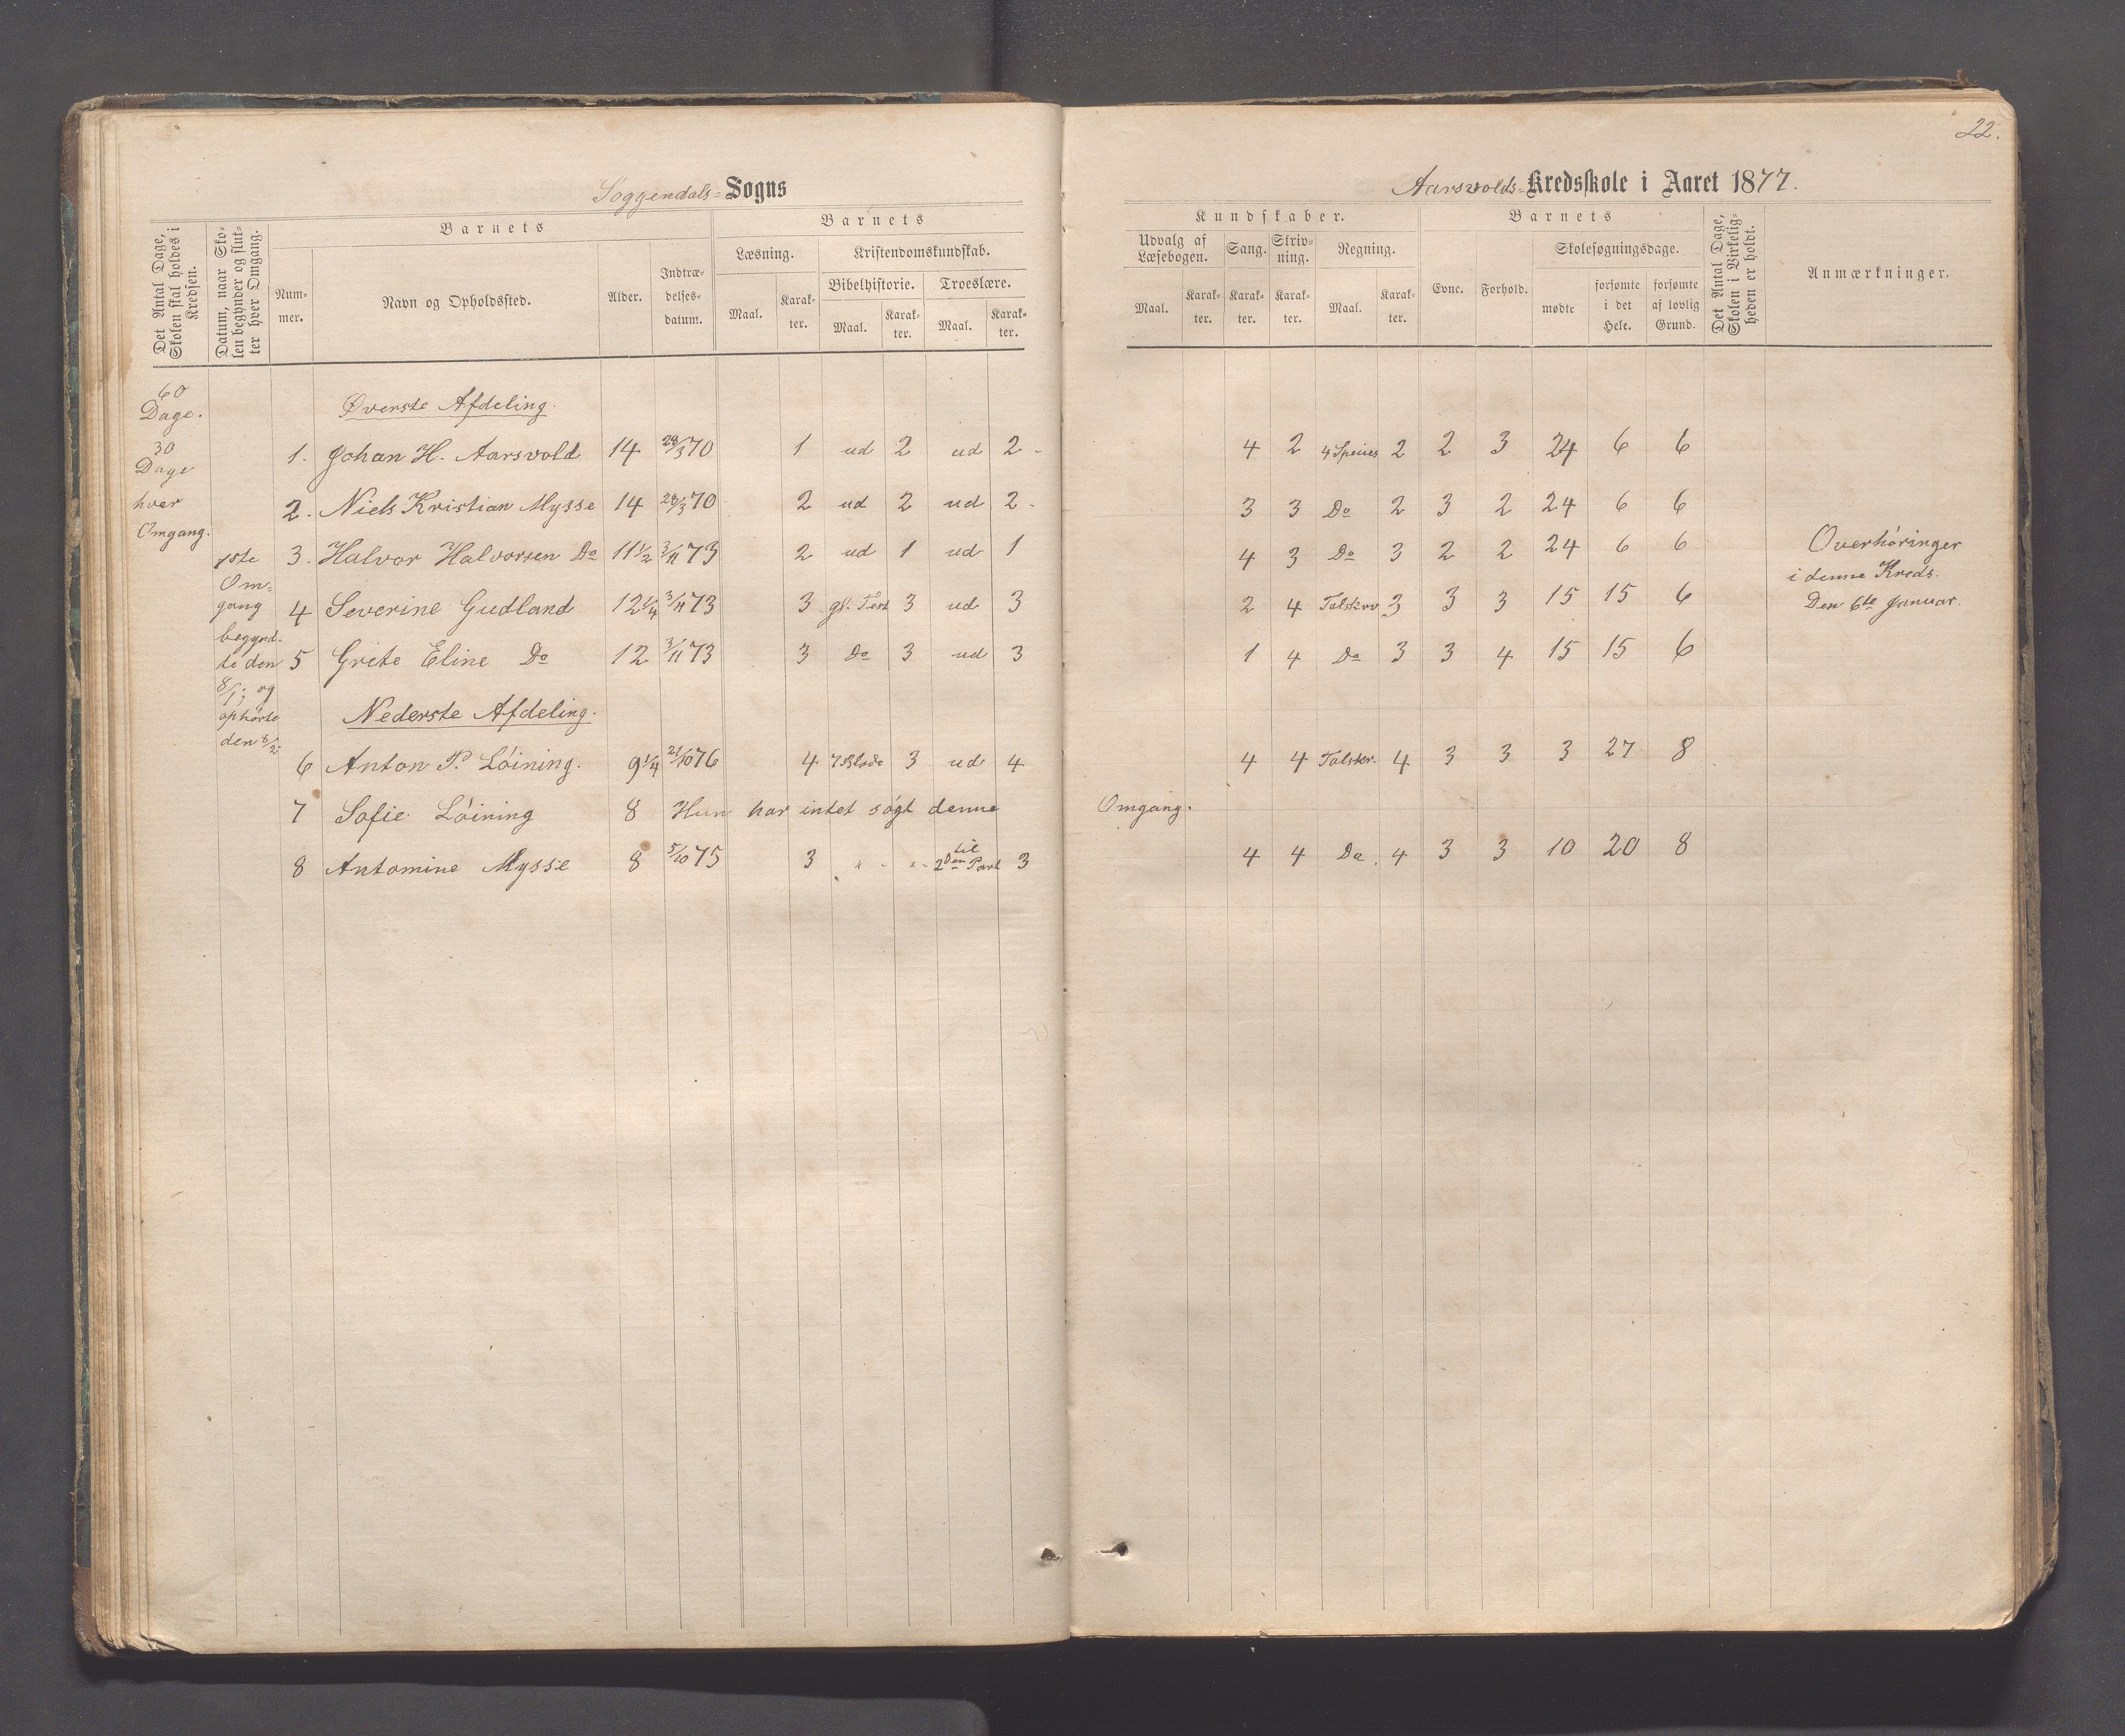 22.
Soggendals- Sogns
Aarsvolds- Kredsskole i Aaret 1877.
Det Antal Dage, Skolen skal holdes i Kredsen.
Datum, naar Skolen begynder og slutter hver Omgang.
Barnets
Nummer.
Navn og Opholdssted.
Alder.
Indtrædelsesdatum.
Barnets
Læsning.
Kristendomskundskab.
Bibelhistorie.
Troeslære.
Maal. Karakter. Maal. Karakter. Maal. Karakter.
Kundskaber.
Udvalg af Læsebogen.
Sang.
Skrivning.
Regning.
Maal. Karakter. Karakter. Karakter. Maal. Karakter.
Barnets
Evne. Forhold.
Skolesøgningsdage.
mødte
forsømte i det Hele.
forsømte af lovlig Grund.
Det Antal Dage, Skolen i Virkeligheden er holdt.
Anmærkninger.
60
Dage.
30
Dage
hver
Omgang.
1ste
Om-
gang
begynd-
te den
8/1; og
ophørte
den 8/2.
Øverste Afdeling.
1. Johan H. Aarsvold 14 28/3 70 1 ud 2 ud 2 - 4 2 4 Species 2 2 3 24 6 6
2. Niels Kristian Mysse 14 28/3 70 2 ud 2 ud 2 - 3 3 Do 2 3 2 24 6 6
3. Halvor Halvorsen Do 11 1/2 3/11 73 2 ud 1 ud 1 4 3 Do 3 2 2 24 6 6
4 Severine Gudland 12 1/4 3/11 73 3 gl. Test 3 ud 3 2 4 Talskrv 3 3 3 15 15 6
5 Grete Eline Do 12 3/11 73 3 Do 3 ud 3 1 4 Do 3 3 4 15 15 6
Overhøringer
i denne Kreds.
Den 6te Januar.
Nederste Afdeling.
6 Anton P. Løining. 9 1/4 21/10 76 4 7 Blade 3 ud 4 4 4 Talskr. 4 3 3 3 27 8
7 Sofie Løining 8 Hun har intet søgt denne Omgang.
8 Antomine Mysse 8 5/10 75 3 " - " - til 2den Part 3 4 4 Do. 4 3 3 10 20 8